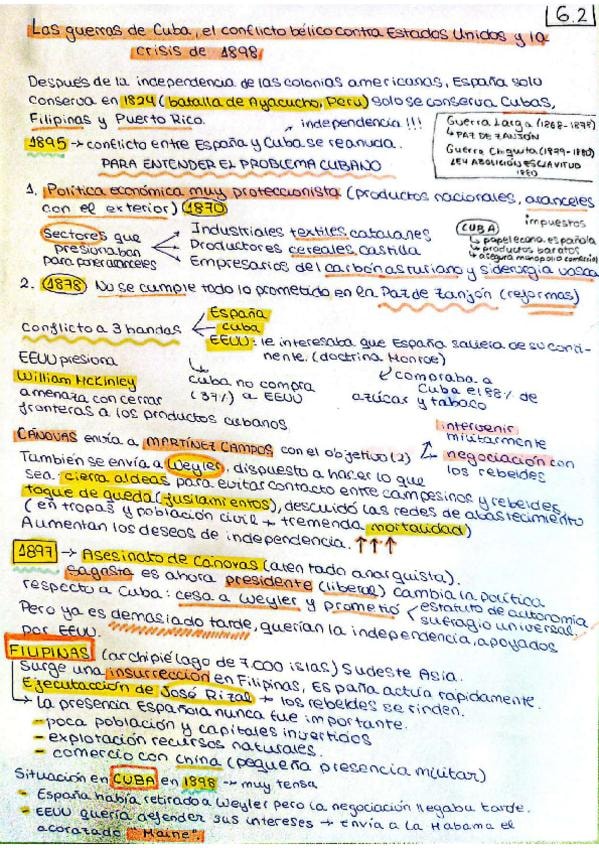 6.2
Las guerras de Cuba, el conflicto bélico contra Estados Unidos y la
crisis de 1898
Después de la independencia de las colonias americanas, España solo
conserva en 1824 (batalla de Ayacucho, Perú) solo se conserva Cubas,
Filipinas y Puerto Rico.
independencia!!!
1895 → conflicto entre España y Cuba se reanuda.
Guerra Larga (1868-1878)
↳ PAZ DE ZANJÓN
Guerra Chiquita (1879-1880)
LEY ABOLICIÓN ESCLAVITUD
1880
PARA ENTENDER EL PROBLEMA CUBANO
1. Política económica muy proteccionista (productos nacionales, aranceles
con el exterior) 1870
impuestos
Sectores que
presionaban
para poner aranceles
Industriales textiles catalanes
Productores cereales castilla
Empresarios del carbón asturiano y siderurgia vasca
CUBA
↳ papel econ. española
↳ productos baratos
↳ asegura monopolio comercial
2. 1878 No se cumple todo lo prometido en la Paz de Zanjón (reformas)
Conflicto a 3 bandas
España
Cuba
EEUU: le interesaba que España saliera de su conti-
nente. (doctrina Monroe)
EEUU presiona
William McKinley
amenaza con cerrar
fronteras a los productos cubanos
Cuba no compra
(37%) a EEUU
compraba a
Cuba el 88% de
azúcar y tabaco
CÁNOVAS envía a MARTÍNEZ CAMPOS con el objetivo (2)
intervenir
militarmente
negociación con
los rebeldes
También se envía a Weyler, dispuesto a hacer lo que
sea: cierra aldeas para evitar contacto entre campesinos y rebeldes,
toque de queda (fusilamientos), descuidó las redes de abastecimiento
(en tropas y población civil → tremenda mortalidad)
Aumentan los deseos de independencia. ↑↑↑
1897 → Asesinato de Cánovas (atentado anarquista).
Sagasta es ahora presidente (liberal) cambia la política
respecto a Cuba: cesa a Weyler y prometió
estatuto de autonomía
sufragio universal
Pero ya es demasiado tarde, querían la independencia, apoyados
por EEUU.
FILIPINAS (archipiélago de 7.000 islas) Sudeste Asia.
Surge una insurrección en Filipinas, España actúa rapidamente.
Ejecutacción de José Rizal → los rebeldes se rinden.
↳ la presencia Española nunca fue importante.
- poca población y capitales invertidos
- explotación recursos naturales.
- comercio con China (pequeña presencia militar)
Situación en CUBA en 1898 → muy tensa
- España había retirado a Weyler pero la negociación llegaba tarde.
- EEUU quería defender sus intereses → Envía a la Habama el
acorazado "Maine".